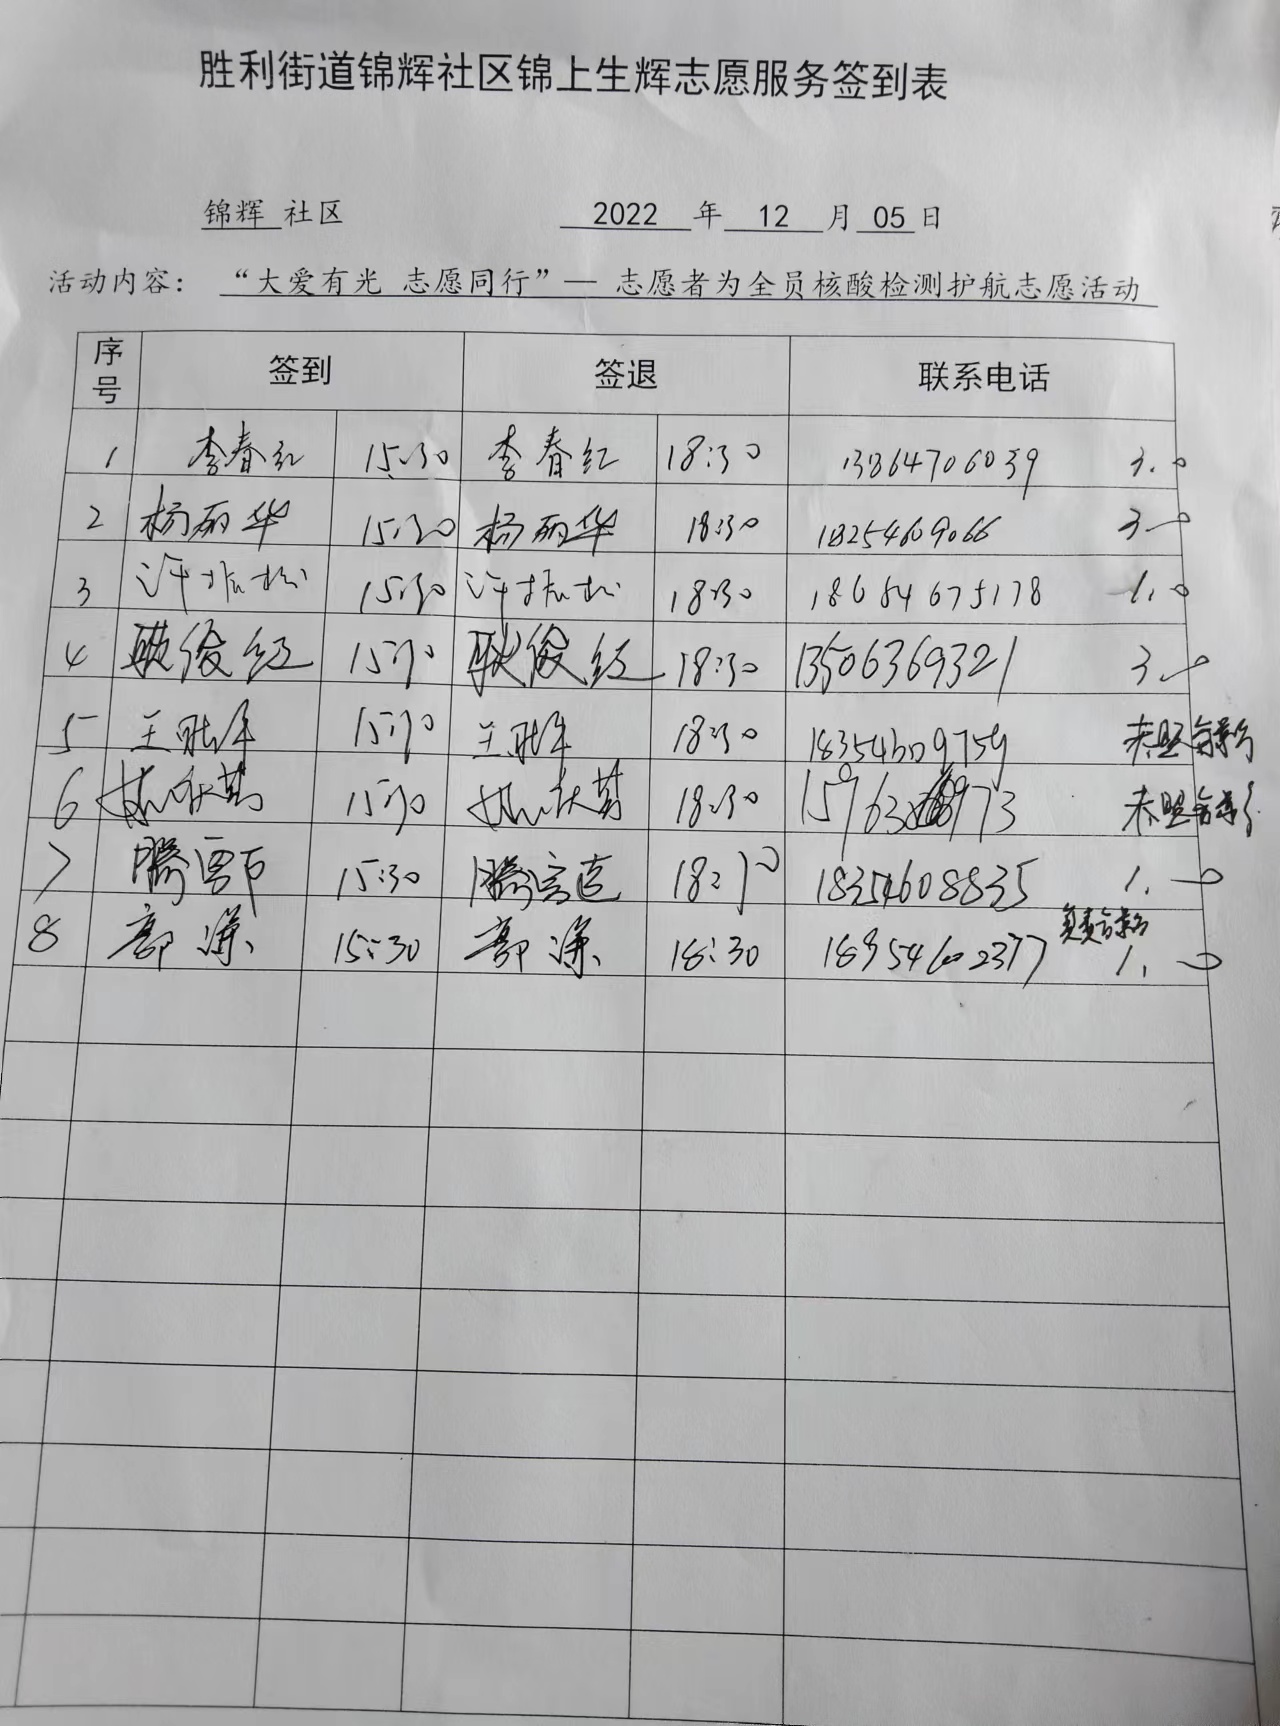 胜利街道锦辉社区锦上生辉志愿服务签到表
锦辉 社区 2022 年 12 月 05 日
活动内容： “大爱有光 志愿同行”— 志愿者为全员核酸检测护航志愿活动
序号 签到 签退 联系电话
1 李春红 15:30 李春红 18:30 13864706039 3.0
2 杨丽华 15:30 杨丽华 18:30 18254609066 3.0
3 许 15:30 许 18:30 18684675178 1.0
4 耿俊红 15:30 耿俊红 18:30 13506369321 3.0
5 王 15:30 王 18:30 18354609759
6 15:30 18:30
7 滕 15:30 滕 18:30 18354608835 1.0
8 15:30 18:30 18954602377 1.0